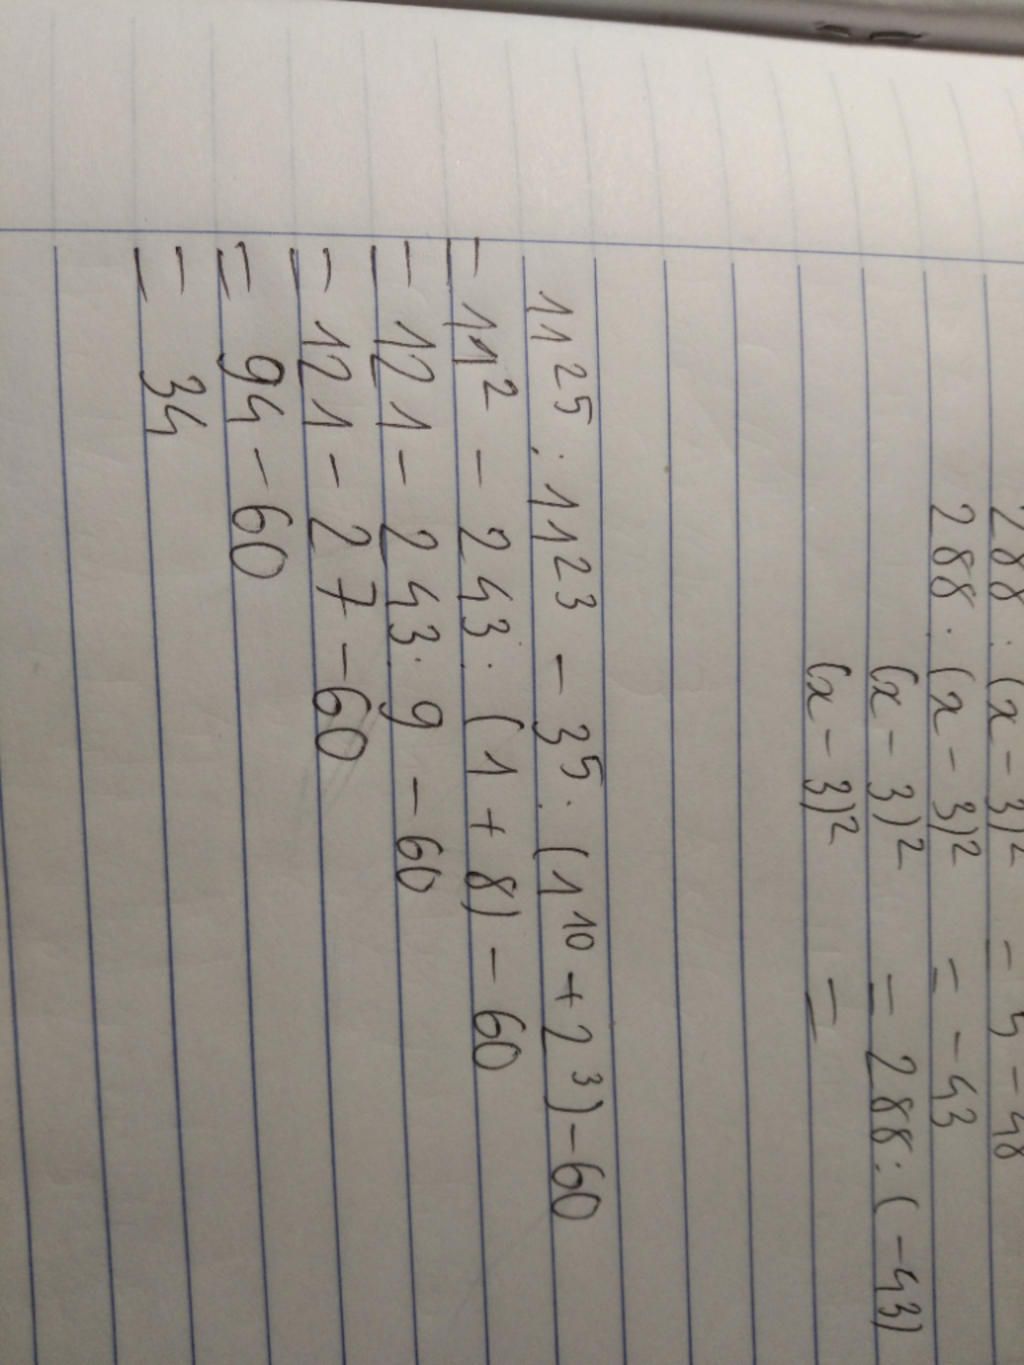 288 : (x - 3)² = 5 - 48
288 : (x - 3)² = - 43
(x - 3)² = 288 : ( - 43)
(x - 3)² =
11²⁵ : 11²³ - 3⁵ : (1¹⁰ + 2³) - 60
= 11² - 243 : (1 + 8) - 60
= 121 - 243 : 9 - 60
= 121 - 27 - 60
= 94 - 60
= 34